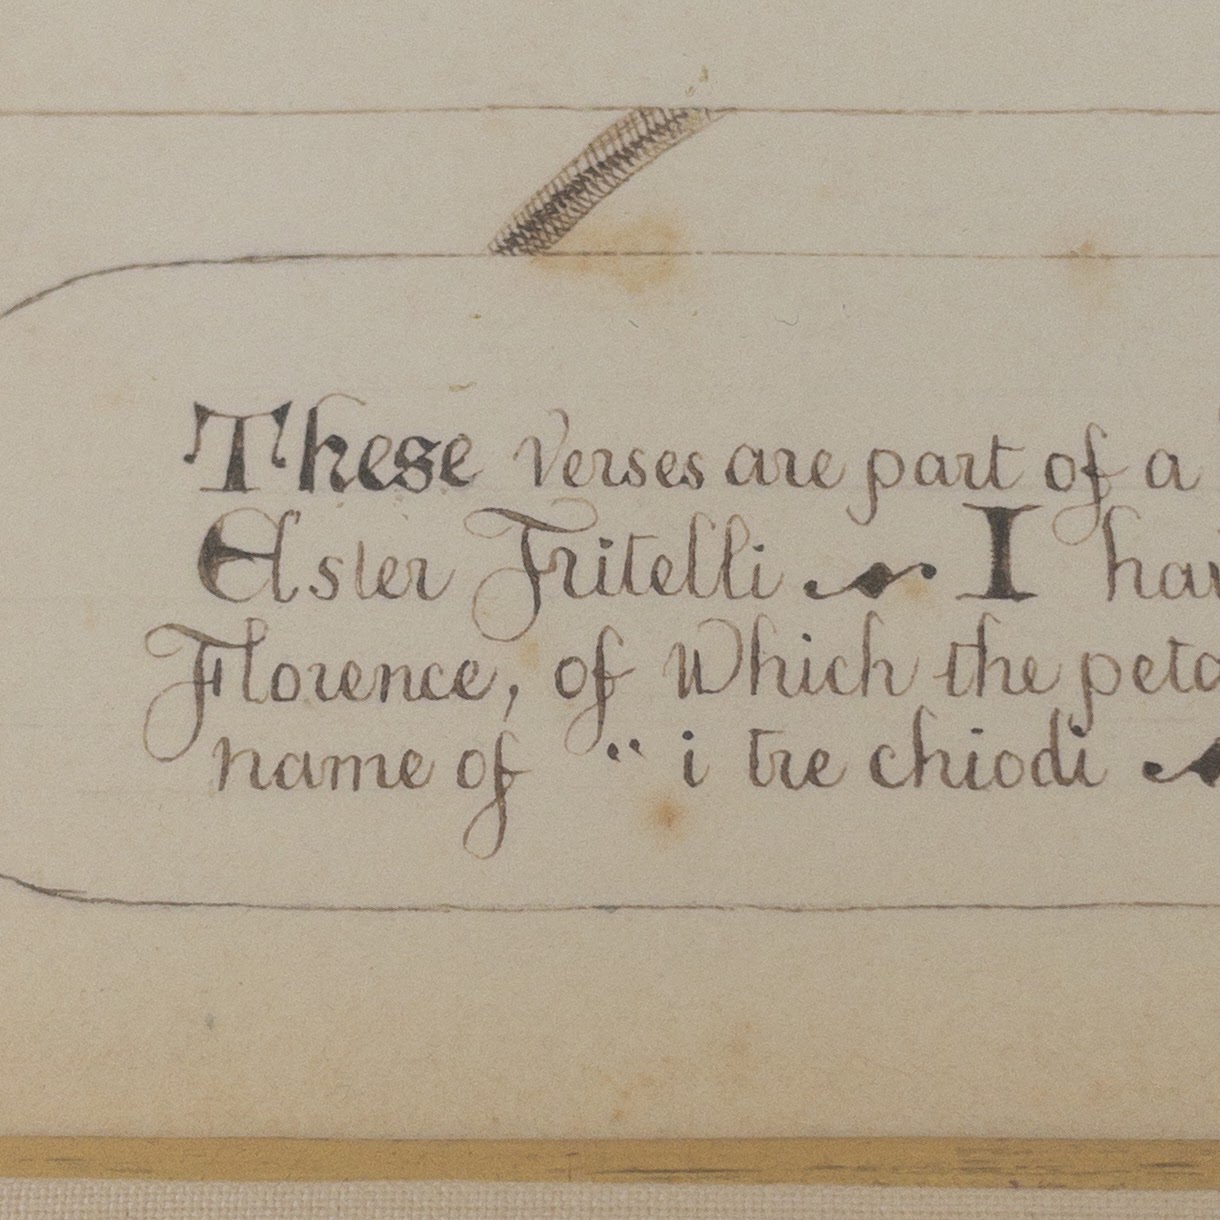 These verses are part of a
Ester Fritelli ~ I hav
Florence, of which the peta
name of " i tre chiodi ~